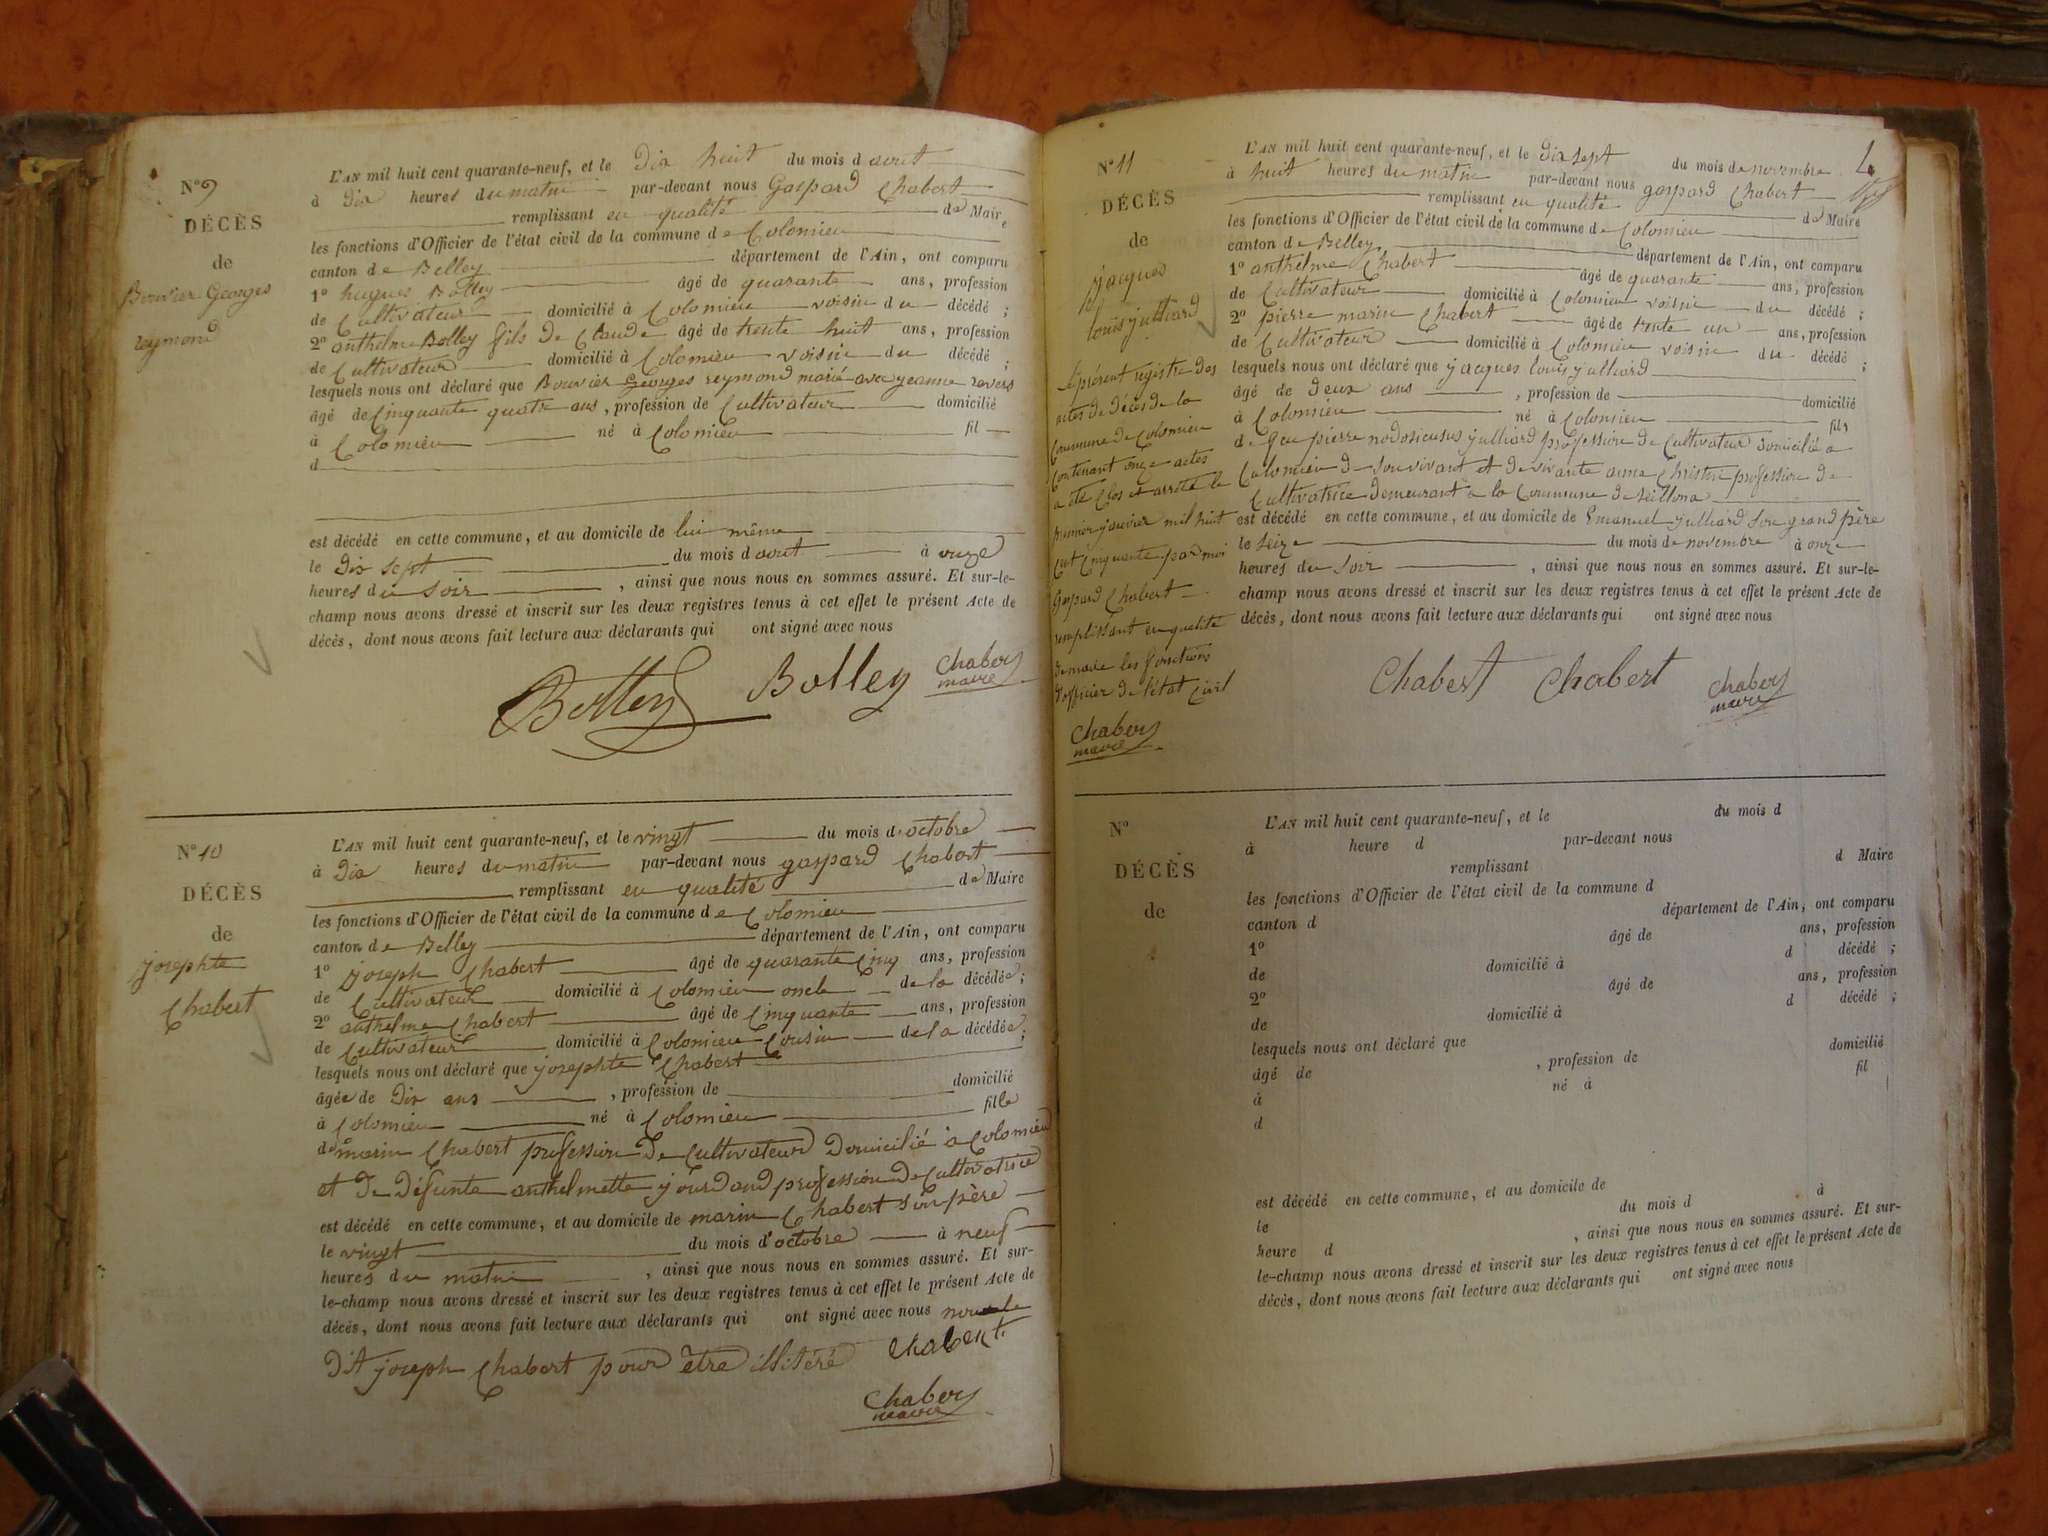 N° 9
DÉCÈS
de
Bouvier Georges
reymond
L'AN mil huit cent quarante-neuf, et le Dix huit du mois d aout
à Dix heures du matin par-devant nous Gaspard Chabert
remplissant en qualité de Maire
les fonctions d'Officier de l'état civil de la commune de Colomieu
canton de Belley département de l'Ain, ont comparu
1° hugues Bolley âgé de quarante ans, profession
de Cultivateur domicilié à Colomieu voisin du décédé ;
2° anthelme Bolley fils de Claude âgé de trente huit ans, profession
de Cultivateur domicilié à Colomieu voisin du décédé ;
lesquels nous ont déclaré que Bouvier Georges reymond marié avec jeanne ravers
âgé de Cinquante quatre ans, profession de Cultivateur domicilié
à Colomieu né à Colomieu fil
d
est décédé en cette commune, et au domicile de lui même
le Dix sept du mois d aout à onze
heures du soir, ainsi que nous nous en sommes assuré. Et sur-le-
champ nous avons dressé et inscrit sur les deux registres tenus à cet effet le présent Acte de
décès, dont nous avons fait lecture aux déclarants qui ont signé avec nous
Bolley Bolley Chabert
maire
N° 10
DÉCÈS
de
josephte
Chabert
L'AN mil huit cent quarante-neuf, et le vingt du mois d'octobre
à Dix heures du matin par-devant nous gaspard Chabert
remplissant en qualité de Maire
les fonctions d'Officier de l'état civil de la commune de Colomieu
canton de Belley département de l'Ain, ont comparu
1° joseph Chabert âgé de quarante Cinq ans, profession
de Cultivateur domicilié à Colomieu oncle de la décédée ;
2° anthelme Chabert âgé de Cinquante ans, profession
de Cultivateur domicilié à Colomieu Cousin de la décédée ;
lesquels nous ont déclaré que josephte Chabert
âgée de Dix ans, profession de domicilié
à Colomieu né à Colomieu fille
de marin Chabert profession De Cultivateur Domicilié à Colomieu
et De Défunte anthelmette jourdand profession De Cultivatrice
est décédé en cette commune, et au domicile de marin Chabert son père
le vingt du mois d'octobre à neuf
heures du matin, ainsi que nous nous en sommes assuré. Et sur-
le-champ nous avons dressé et inscrit sur les deux registres tenus à cet effet le présent Acte de
décès, dont nous avons fait lecture aux déclarants qui ont signé avec nous non le
Dit joseph Chabert pour être illitéré Chabert
Chabert
maire
N° 11
DÉCÈS
de
jacques
louis julliard
le présent registre des
actes de décès de la
Commune de Colomieu
Contenant onze actes
a été Clos et arrêté le
premier janvier mil huit
Cent Cinquante par moi
Gaspard Chabert
remplissant en qualité
de maire les fonctions
d'officier de l'état Civil
Chabert
maire
L'AN mil huit cent quarante-neuf, et le dix sept du mois de novembre
à huit heures du matin par-devant nous gaspard Chabert
remplissant en qualité de Maire
les fonctions d'Officier de l'état civil de la commune de Colomieu
canton de Belley département de l'Ain, ont comparu
1° anthelme Chabert âgé de quarante ans, profession
de Cultivateur domicilié à Colomieu voisin du décédé ;
2° pierre marin Chabert âgé de trente un ans, profession
de Cultivateur domicilié à Colomieu voisin du décédé ;
lesquels nous ont déclaré que jacques louis julliard
âgé de deux ans, profession de domicilié
à Colomieu né à Colomieu fils
de feu pierre julliard profession de Cultivateur domicilié a
Colomieu de son vivant et de vivante profession de
Cultivatrice demeurant a la Commune de
est décédé en cette commune, et au domicile de Emanuel julliard son grand père
le seize du mois de novembre à onze
heures du soir, ainsi que nous nous en sommes assuré. Et sur-le-
champ nous avons dressé et inscrit sur les deux registres tenus à cet effet le présent Acte de
décès, dont nous avons fait lecture aux déclarants qui ont signé avec nous
Chabert Chabert Chabert
maire
N°
DÉCÈS
de
L'AN mil huit cent quarante-neuf, et le du mois d
à heure d par-devant nous
remplissant d Maire
les fonctions d'Officier de l'état civil de la commune d
canton d département de l'Ain, ont comparu
1° âgé de ans, profession
de domicilié à d décédé ;
2° âgé de ans, profession
de domicilié à d décédé ;
lesquels nous ont déclaré que
âgé de , profession de domicilié
à né à fil
d
est décédé en cette commune, et au domicile de
le du mois d à
heure d , ainsi que nous nous en sommes assuré. Et sur-
le-champ nous avons dressé et inscrit sur les deux registres tenus à cet effet le présent Acte de
décès, dont nous avons fait lecture aux déclarants qui ont signé avec nous